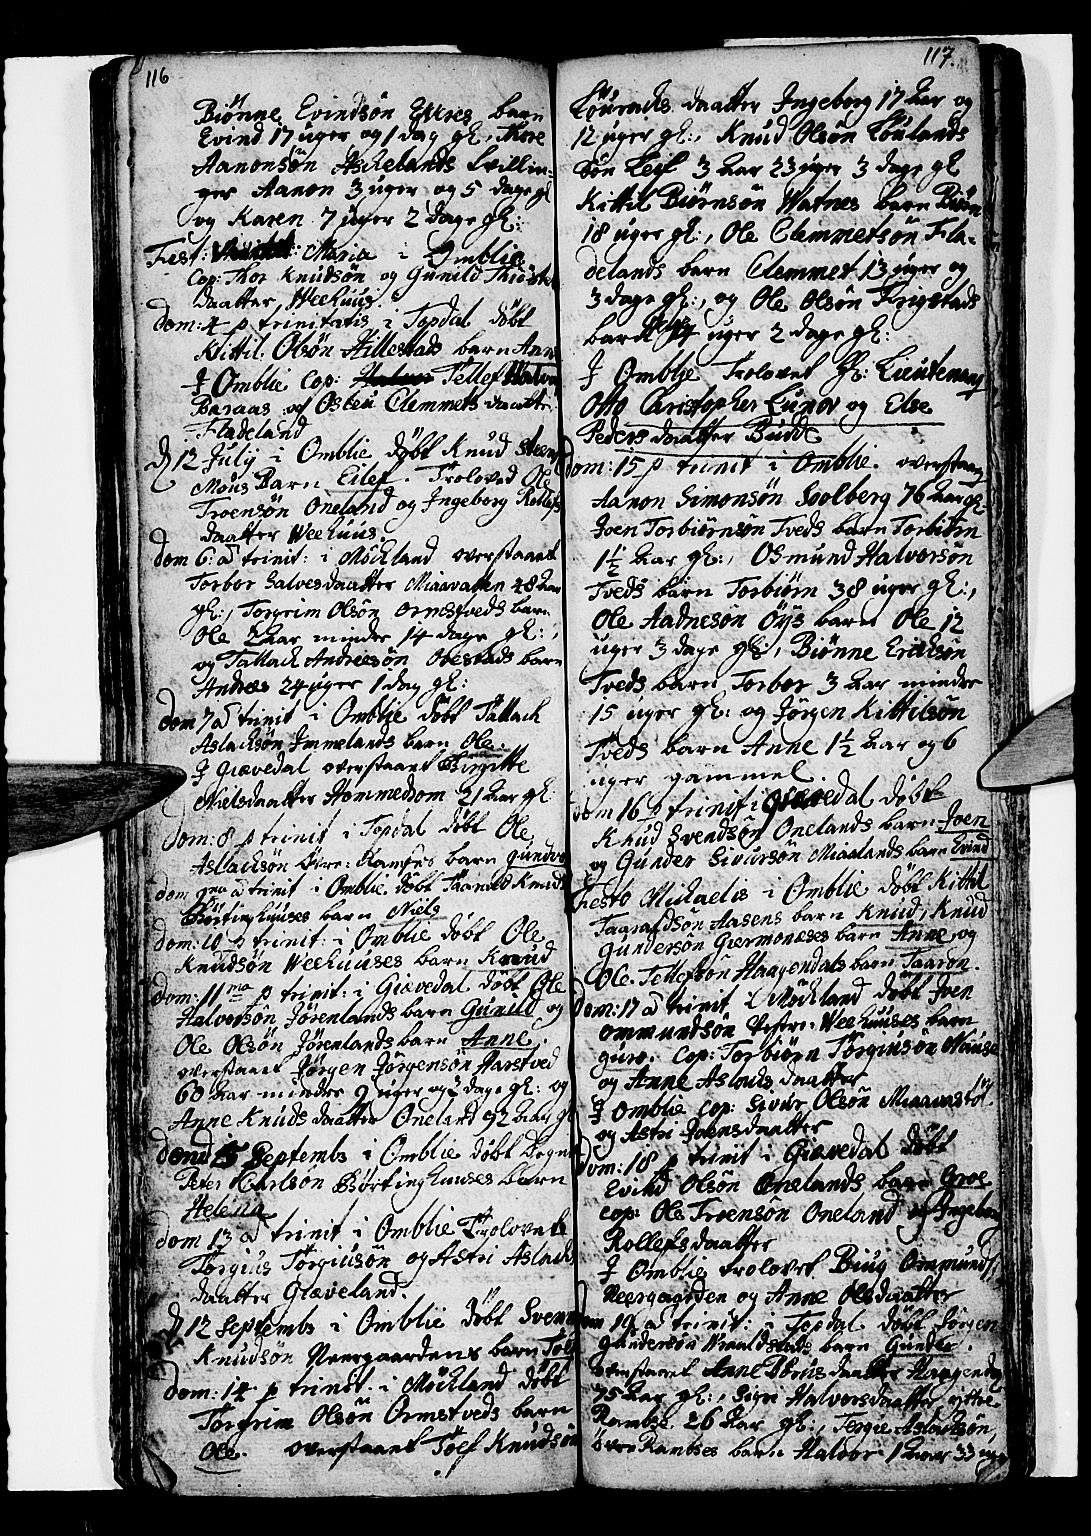 116
Biønne Evindsøn Eppes barn
Evind 17 uger og 1 dag gl:, Thore
Aanonsøn Askelands tvillin-
ger Aanon 3 uger og 5 dage gl
og Karen 7 uger 2 dage gl:
Fest: Maria i Omblie
Cop: Thor Knudsøn og Gunild
daatter Weehuus.
dom: 4 p trinitatis i Topdal døbt
Kittil Olsøn Hillestads barn Anne
J Omblie Cop: Tellef
Baraas og Osteu Clemmets daatter
Fladeland
D 12 July i Omblie døbt Knud
Barn Eilef. Troloved Ole
Troensøn Oneland og Ingeborg Rollefs
daatter Weehuus.
dom 6 a trinit: i Möckland overstaaet
Torbor Salvesdaatter Miaavatten 48 aar
gl:, Torgrim Olsøn Ormstveds barn
Ole 2 aar mindre 14 dage gl:,
og Tallack Andresøn Ovestads barn
Andres 24 uger 1 dag gl:
dom 7 a trinit i Omblie døbt Tallack
Aslacksøn Immelands barn Ole.
J Giævedal overstaaet Birgitte
Nielsdaatter Hommedsom 21 aar gl
dom: 8 p trinit i Topdal døbt Ole
Aslacksøn barn Gundvor
dom 9na a trinit i Omblie døbt Taarald Knuds
Børtinghuuses barn Niels
dom: 10 p trinit: i Omblie døbt Ole
Knudsøn Weehuuses barn Knud
dom: 11ma p trinit: i Giævedal døbt Ole
Halvorsøn Jørenlands barn Gunild og
Ole Olsøn Jørenlands barn Anne.
overstaaet Jørgen Jørgensøn Harstved
60 aar mindre 9 uger og 2 dage gl: og
Anne Knuds daatter Oneland 92 aar gl
d 5 Septembs i Omblie døbt
Peter Carlsøn Børtinghuuses barn
Helena
dom 13 a trinit i Omblie Trolovet
Torgius Torgiusøn og Astri Aslachs
daatter Giæveland.
D 12 Septembs i Omblie døbt Svennung
Knudsøn Neergaardens barn
dom: 14 p trinit. i Möckland døbt
Torgrim Olsøn Ormstveds barn
Ole. overstaaet Toef Knudsøn
117.
daatter Ingeborg 17 aar og
12 uger gl:, Knud Olsøn
søn Leif 3 aar 23 uger 3 dage gl
Kittil Biørnsøn Watnes barn Biørn
18 uger gl:, Ole Clemmetsøn Fla-
delands barn Clemmet 13 uger og
3 dage gl:, og Ole Olsøn Frigstads
barn uger 2 dage gl:
J Omblie Trolovet Hr: Lieutenant
Otto Christopher Lunov og Else
Peders daatter Budde
dom: 15 p trinit i Omblie. overstaaet
Aanon Simonsøn Soolberg 76 aar gl:
Joen Torbiørnsøn Tveds barn Torbiørn
1½ aar gl:, Osmund Halvorsøn
Tveds barn Torbiørn 38 uger gl:,
Ole Aadnesøn Öÿs barn Ole 12
uger 3 dage gl:, Biønne Ericksøn
Tveds barn Torbor 3 aar mindre
15 uger gl: og Jørgen Kittilsøn
Tveds barn Anne 1½ aar og 6
uger gammel.
dom 16 p trinit i Giævedal døbt
Knud Svendsøn Onelands barn Joen
og Gunder Sivursøn Miaalands barn Evind
Festo Michaelis i Omblie døbt Kittil
Taaraldsøn Aasens barn Knud, Knud
Gundersøn Giermoneses barn Anne og
Ole Tellefsøn Haagendals barn Taaron.
Dom: 17 a trinit i Möckland døbt Joen
Ommundsøn Vestre Weehuuses barn
Guro. Cop: Torbiørn Torgrimson
og Anne Aslaks daatter
J Omblie Cop: Sivur Olsøn
og Astri Joensdaatter
Dom: 18 p trinit i Giævedal døbt
Evind Olsøn Onelands barn Groe
Cop: Ole Troensøn Oneland og Ingeborg
Rollefs daatter
J Omblie trolovet Biug Ommunds
Neergaarden og Anne Olsdaatter
Dom 19 a trinit: i Topdal døbt Jørgen
Gundersøn barn Gunder.
overstaaet Anne daatter Haagendal
75 aar gl:, Signi Halvorsdaatter yttre
Ramse 26 aar gl:, Tergie Aslacksøn
øvre Ramses barn Haldor 1 aar 33 uger